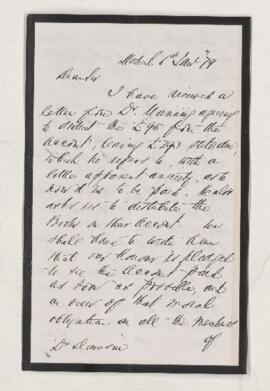 6th Jan '79
Dear Sir
I have received a
letter from Dr. Manning agreeing
to deduct the £98 from the
account, leaving
which he refers to, with a
little apparent anxiety, as to
how it is to be paid. He also
asks us to distribute the
Books in their account. We
shall have to write him
that our honour is pledged
to see the Account paid
as soon as possible, and
in view of that moral
obligation on all the members
of
Dr